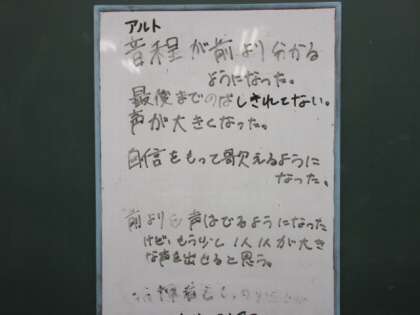 アルト
音程が前より分かる
ようになった。
最後までのばしきれてない。
声が大きくなった。
自信をもって歌えるように
なった。
前よりも声はでるようになった
けど、もう少し1人1人が大き
な声を出せると思う。